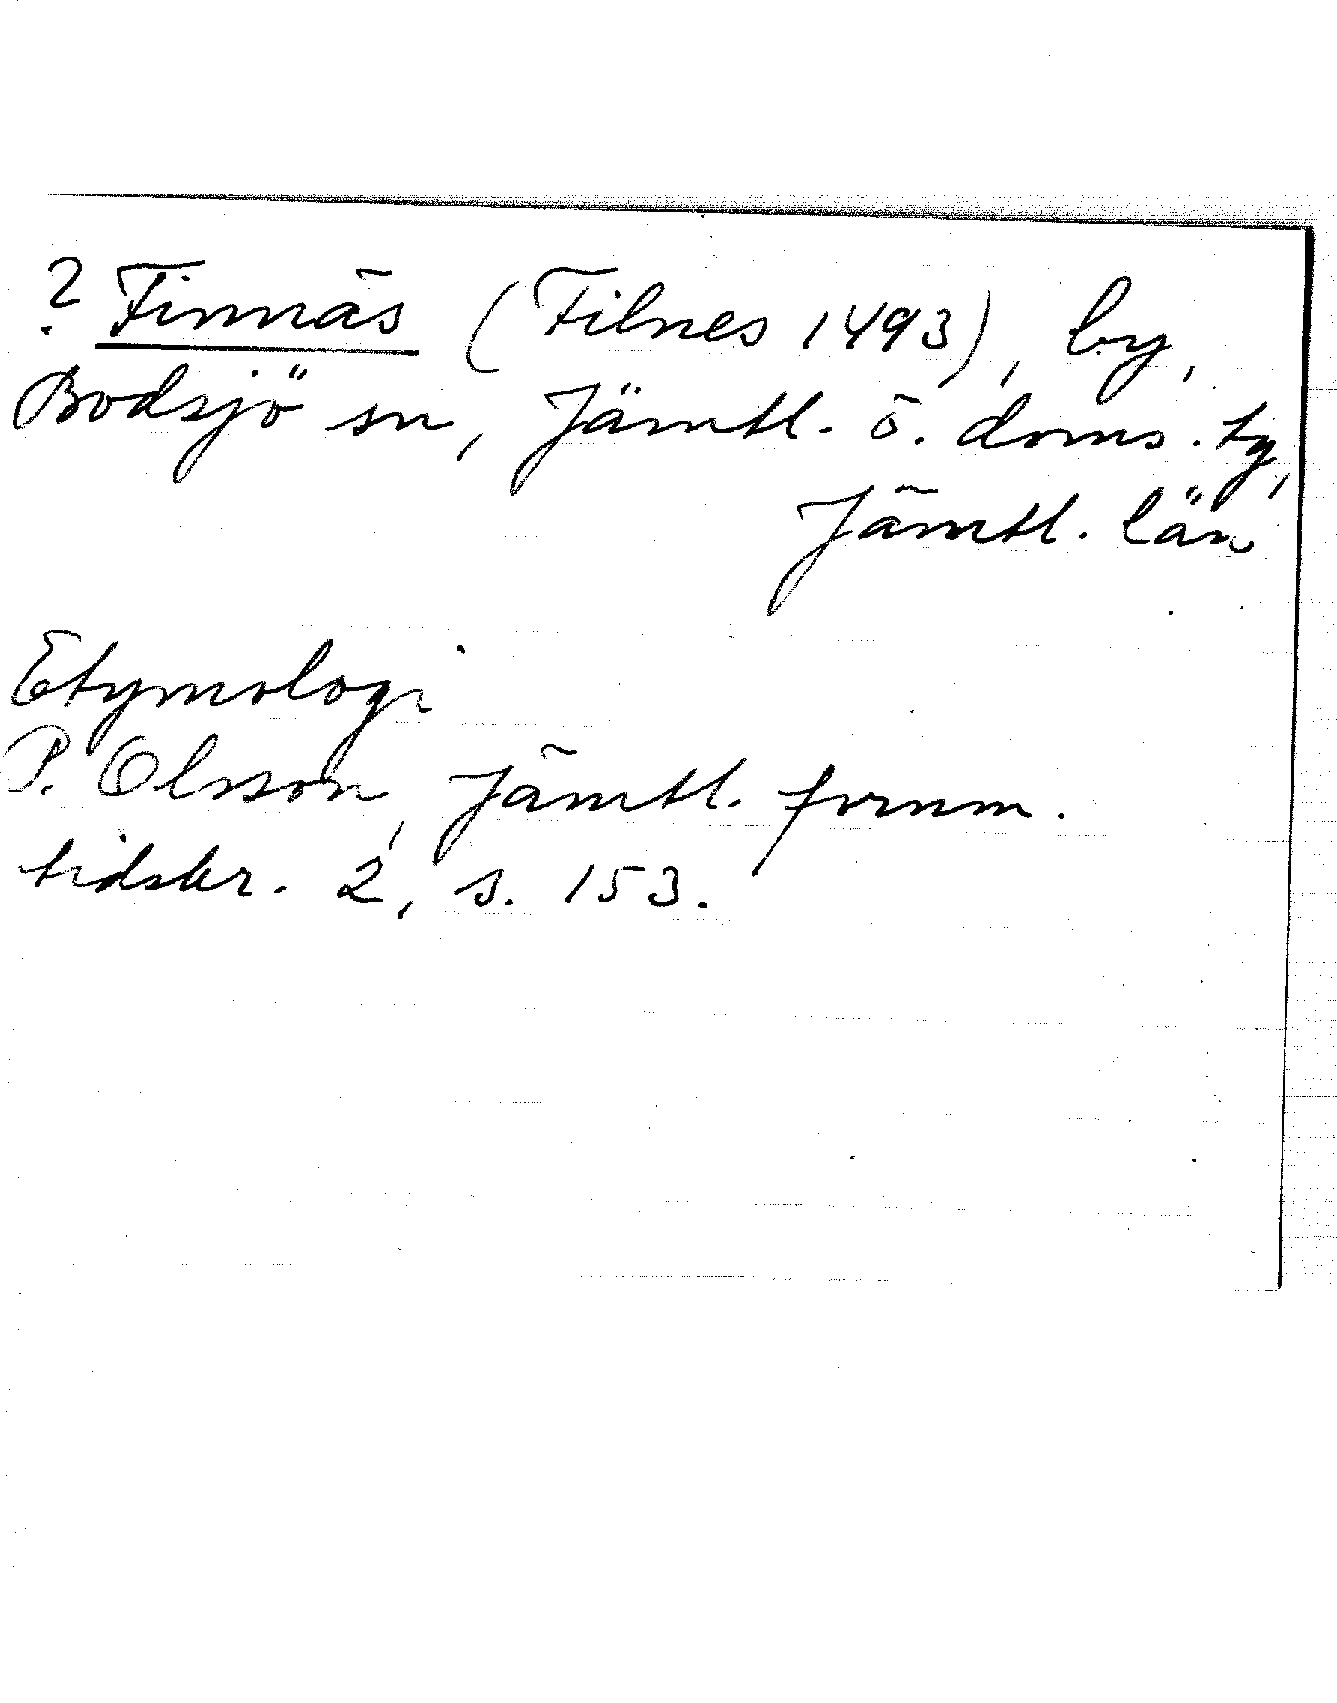 ? Finnäs (Filnes 1493), by,
Bodsjö sn, Jämtl. ö. doms. tg,
Jämtl. län
Etymologi
P. Olsson, Jämtl. fornm.
tidskr. 2, s. 153.